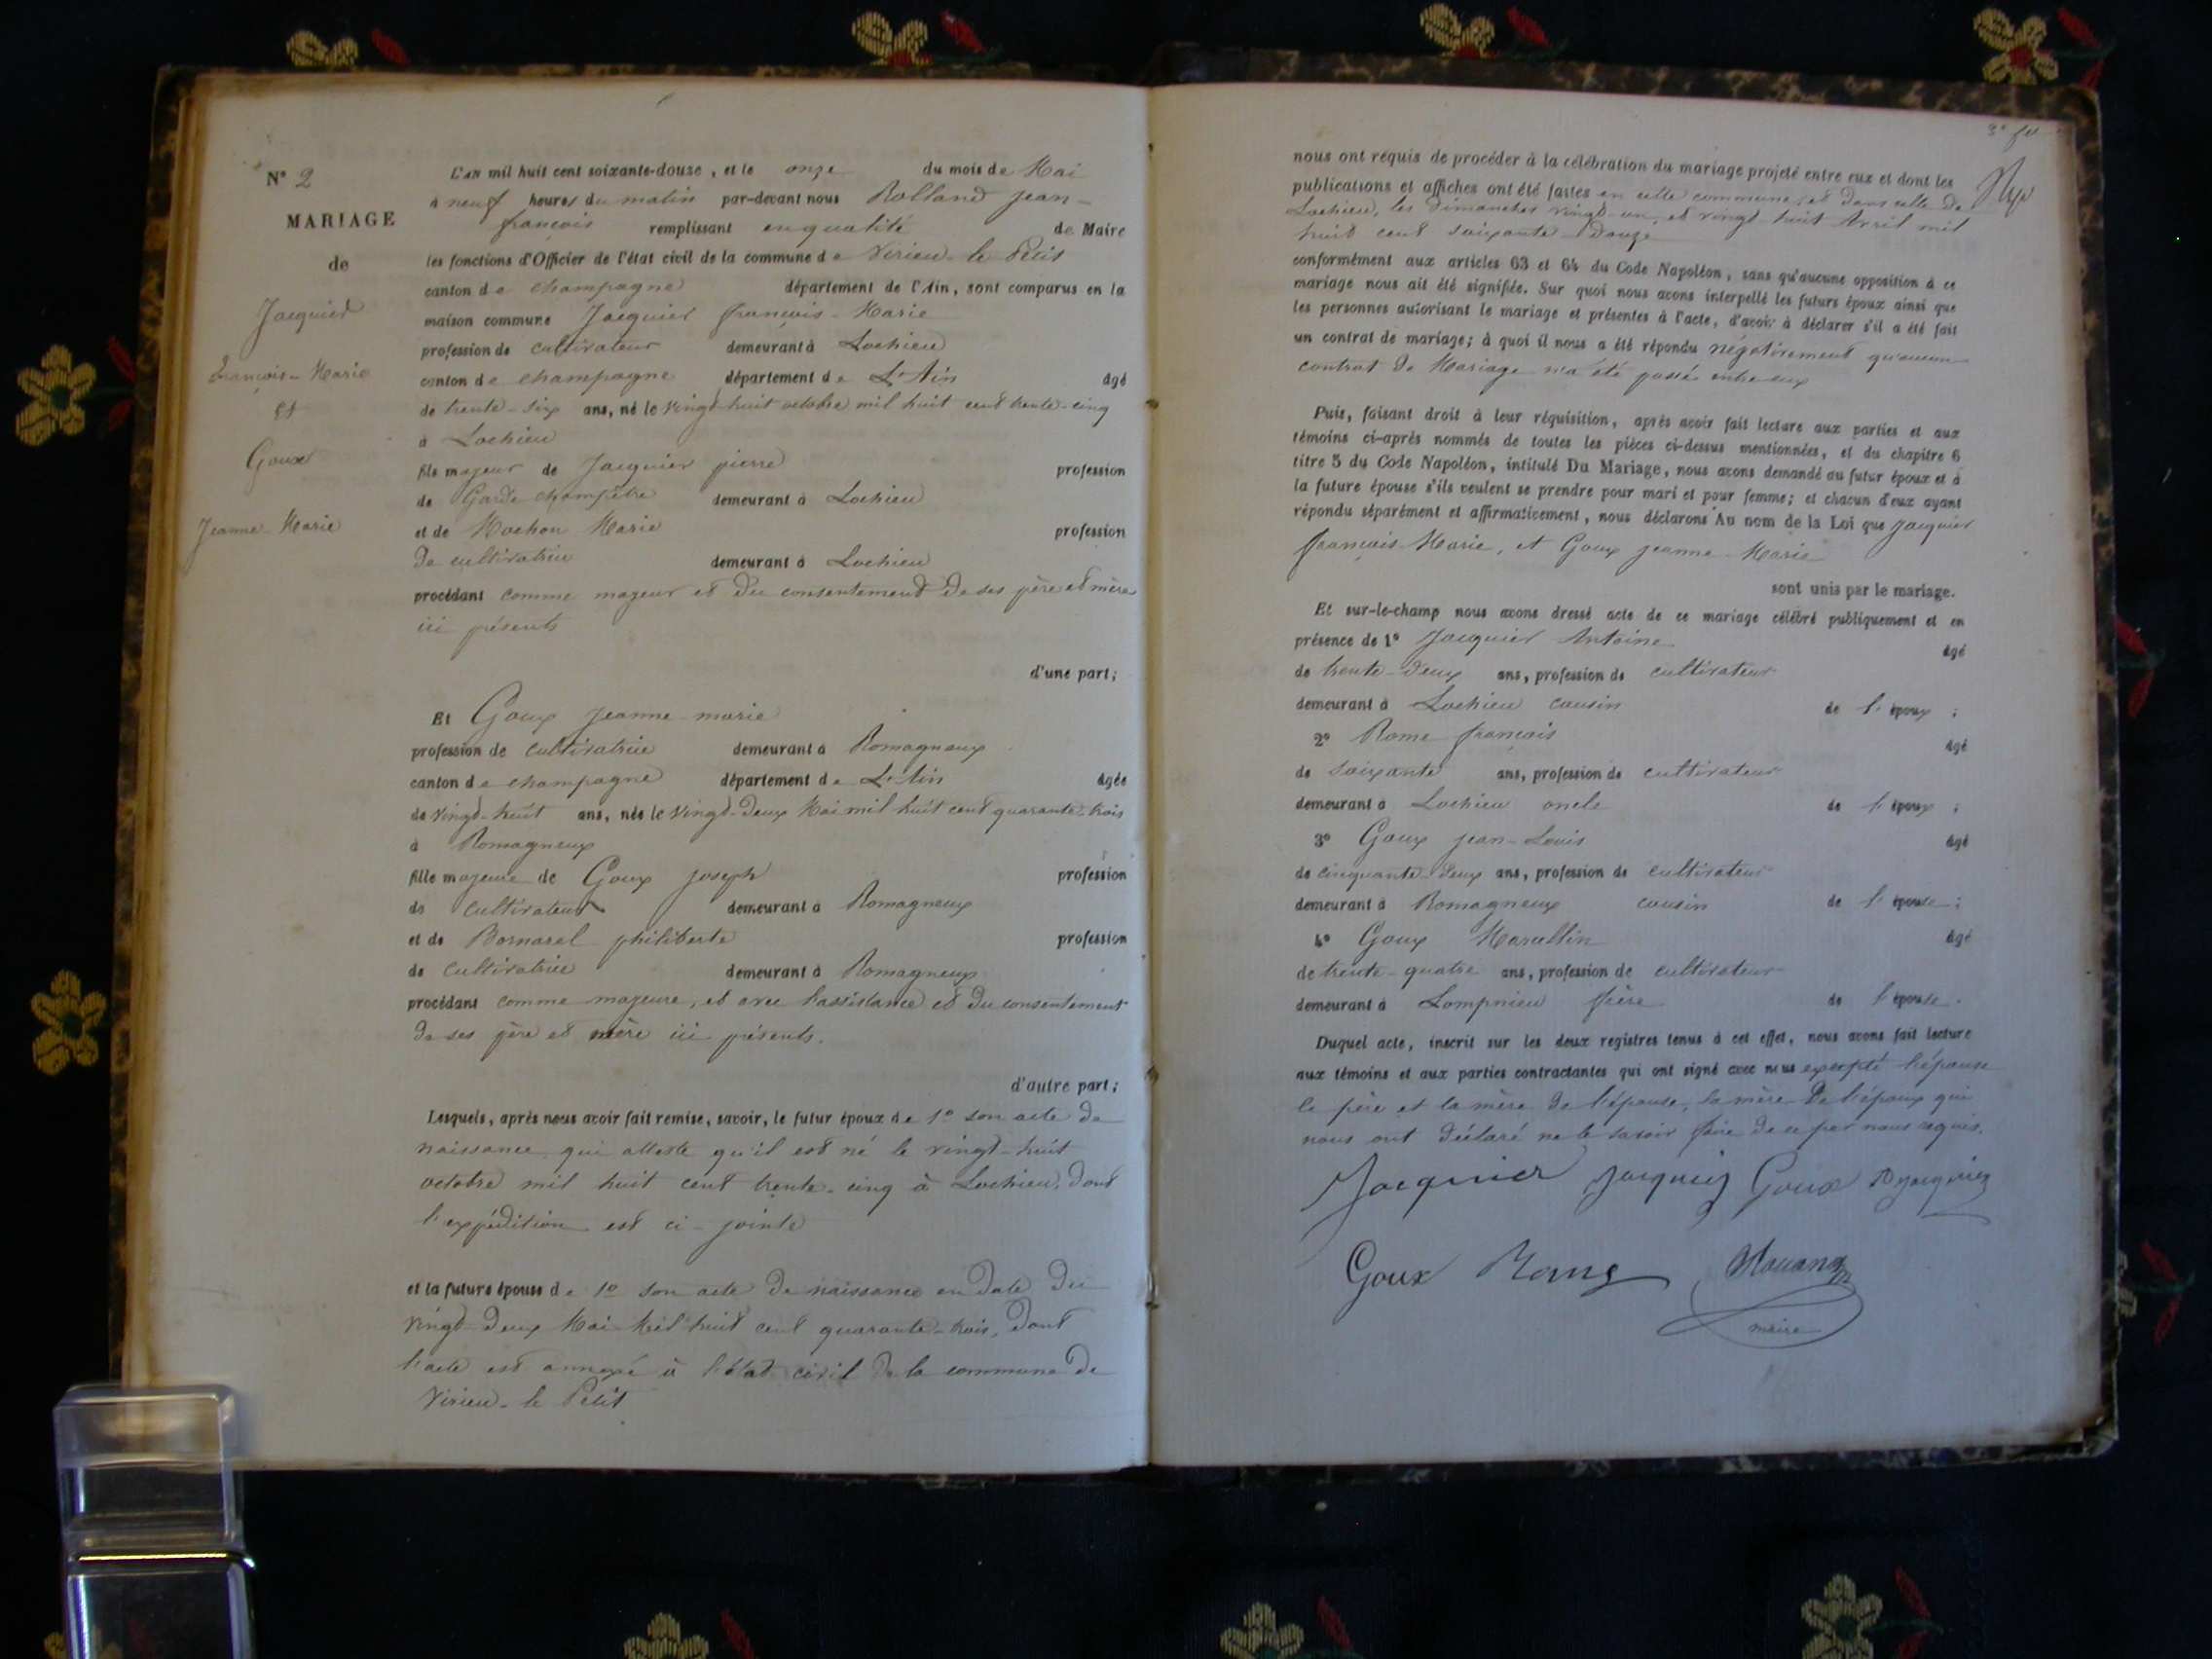 N° 2
MARIAGE
de
Jacquier
François-Marie
et
Goux
Jeanne-Marie
L'an mil huit cent soixante-douze, et le onze du mois de Mai
à neuf heures du matin par-devant nous Rolland jean-
françois remplissant en qualité de Maire
les fonctions d'Officier de l'état civil de la commune de Virieu-le Petit
canton de champagne département de l'Ain, sont comparus en la
maison commune Jacquier françois-Marie
profession de cultivateur demeurant à Lochieu
canton de champagne département de L'Ain âgé
de trente-six ans, né le vingt-huit octobre mil huit cent trente-cinq
à Lochieu
fils majeur de Jacquier pierre profession
de Garde champêtre demeurant à Lochieu
et de Mochon Marie profession
De cultivatrice demeurant à Lochieu
procédant comme majeur et du consentement de ses père et mère
ici présents
d'une part;
Et Goux jeanne-marie
profession de cultivatrice demeurant à Romagneux
canton de champagne département de L'Ain âgée
de vingt-huit ans, née le vingt-deux Mai mil huit cent quarante-trois
à Romagneux
fille majeure de Goux joseph profession
de cultivateur demeurant à Romagneux
et de Bornarel philiberte profession
de cultivatrice demeurant à Romagneux
procédant comme majeure, et avec l'assistance et du consentement
de ses père et mère ici présents.
d'autre part;
Lesquels, après nous avoir fait remise, savoir, le futur époux de 1° son acte de
naissance qui atteste qu'il est né le vingt-huit
octobre mil huit cent trente-cinq à Lochieu, dont
l'expédition est ci-jointe
et la future épouse de 1° son acte de naissance en date du
vingt-deux Mai Mil huit cent quarante-trois, dont
l'acte est annexé à l'état civil de la commune de
Virieu-le Petit
3e fu
nous ont requis de procéder à la célébration du mariage projeté entre eux et dont les
publications et affiches ont été faites en cette commune, et dans celle de
Lochieu, les dimanches vingt-un, et vingt-huit Avril mil
huit cent soixante-Douze
conformément aux articles 63 et 64 du Code Napoléon, sans qu'aucune opposition à ce
mariage nous ait été signifiée. Sur quoi nous avons interpellé les futurs époux ainsi que
les personnes autorisant le mariage et présentes à l'acte, d'avoir à déclarer s'il a été fait
un contrat de mariage; à quoi il nous a été répondu négativement qu'aucun
contrat de Mariage n'a été passé entre eux
Puis, faisant droit à leur réquisition, après avoir fait lecture aux parties et aux
témoins ci-après nommés de toutes les pièces ci-dessus mentionnées, et du chapitre 6
titre 5 du Code Napoléon, intitulé Du Mariage, nous avons demandé au futur époux et à
la future épouse s'ils veulent se prendre pour mari et pour femme; et chacun d'eux ayant
répondu séparément et affirmativement, nous déclarons Au nom de la Loi que jacquier
françois-Marie, et Goux jeanne-Marie
sont unis par le mariage.
Et sur-le-champ nous avons dressé acte de ce mariage célébré publiquement et en
présence de 1° Jacquier Antoine âgé
de trente-deux ans, profession de cultivateur
demeurant à Lochieu cousin de l'époux ;
2° Rome françois âgé
de soixante ans, profession de cultivateur
demeurant à Lochieu oncle de l'époux ;
3° Goux jean-Louis âgé
de cinquante-deux ans, profession de cultivateur
demeurant à Romagneux cousin de l'épouse ;
4° Goux Marcellin âgé
de trente-quatre ans, profession de cultivateur
demeurant à Lompnieu frère de l'épouse.
Duquel acte, inscrit sur les deux registres tenus à cet effet, nous avons fait lecture
aux témoins et aux parties contractantes qui ont signé avec nous excepté l'épouse
le père et la mère de l'épouse, la mère De l'époux qui
nous ont déclaré ne le savoir faire de ce par nous requis.
Jacquier jacquier Goux jacquier
Goux Rome
maire